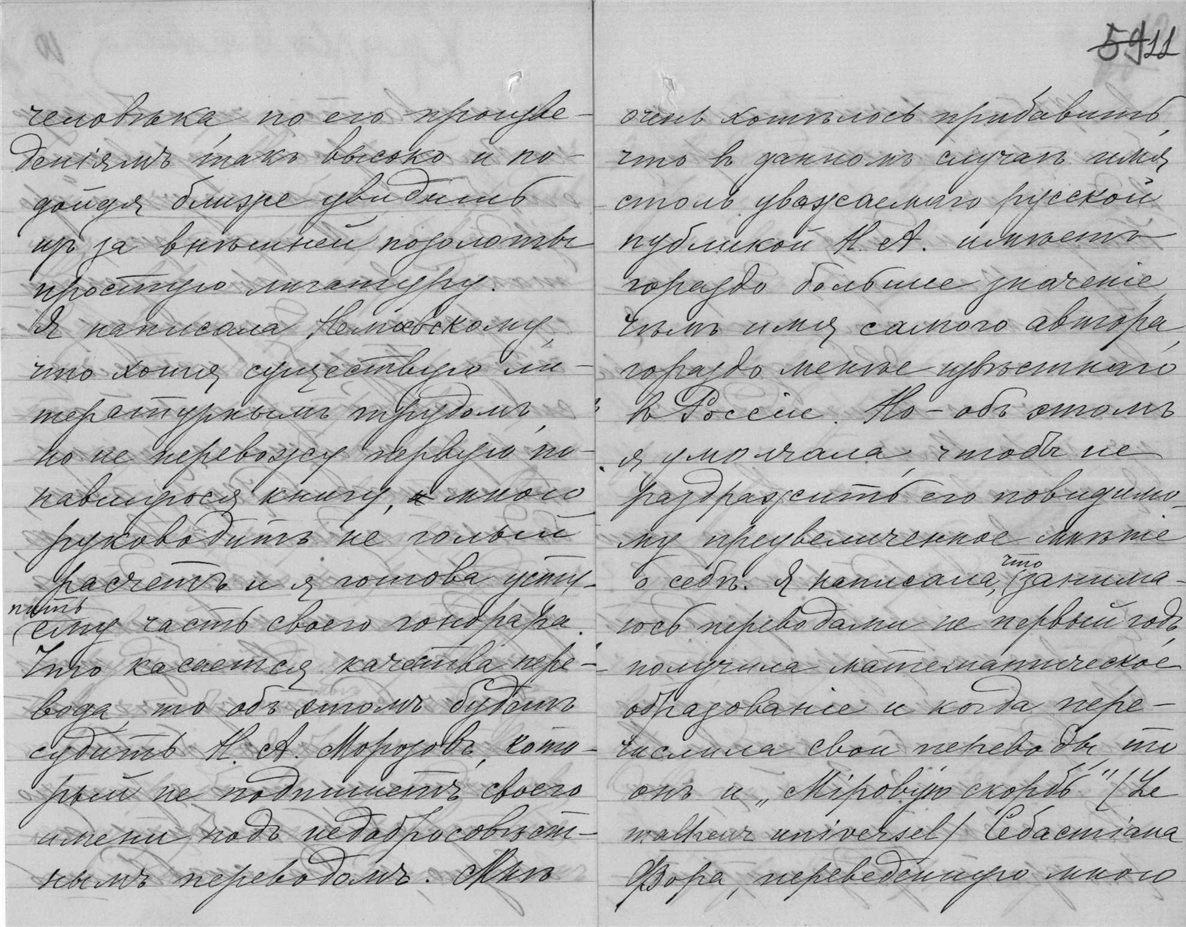 человѣка по его произве-
деніямъ такъ высоко и по-
дойдя ближе увидишь
из за внѣшней позолоты
простую лигатуру.
Я написала Немоевскому,
что хотя существую ли-
тературнымъ трудомъ,
но не перевожу первую по-
павшуюся книгу, мною
руководитъ не голый
расчетъ и я готова усту-
пить
ему часть своего гонорара.
Что касается качества пере-
вода, то объ этомъ будетъ
судить Н. А. Морозовъ, кото-
рый не подпишетъ своего
имени подъ недобросовѣст-
нымъ переводомъ. Мнѣ
5911
очень хотѣлось прибавить,
что в данномъ случаѣ имя
столь уважаемаго русской
публикой Н. А. имѣетъ
гораздо большее значеніе,
чѣмъ имя самого автора,
гораздо менѣе извѣстнаго
в Россіи. Но - объ этомъ
я умолчала, чтобъ не
раздражить его повидимо-
му преувеличенное мнѣніе
о себѣ. Я написала, что занима-
юсь переводами не первый годъ
получила математическое
образованіе и когда пере-
числила свои переводы, то
онъ и „Міровую скорбь" (Le
malheur universel) Себастіана
Фора, переведенную мною